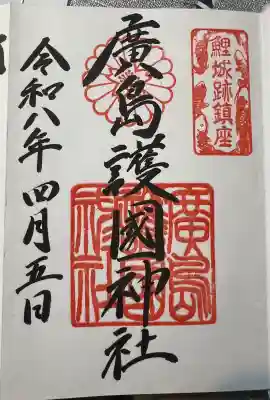 鯉城跡鎮座
廣島護國神社
令和八年四月五日
廣島
護國
神社